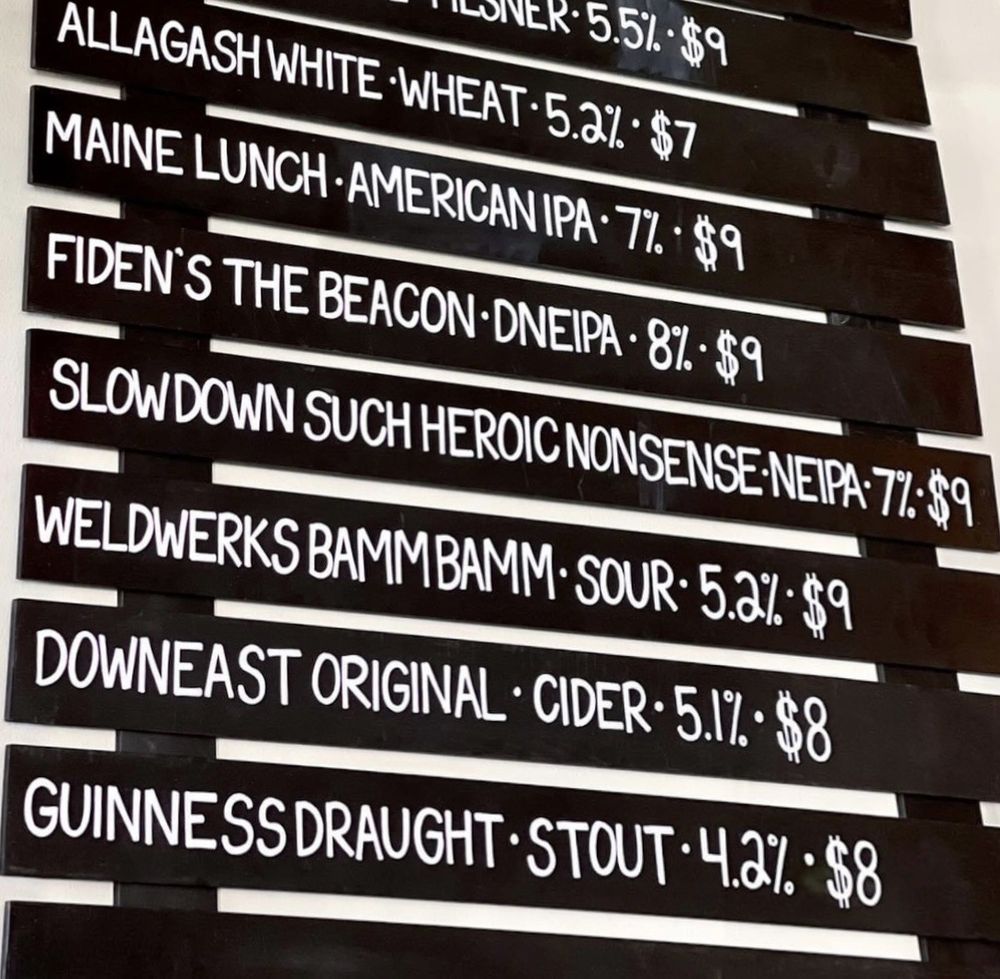 PILSNER · 5.5% · $9
ALLAGASH WHITE · WHEAT · 5.2% · $7
MAINE LUNCH · AMERICAN IPA · 7% · $9
FIDEN'S THE BEACON · DNEIPA · 8% · $9
SLOW DOWN SUCH HEROIC NONSENSE · NEIPA · 7% · $9
WELDWERKS BAMM BAMM · SOUR · 5.2% · $9
DOWNEAST ORIGINAL · CIDER · 5.1% · $8
GUINNESS DRAUGHT · STOUT · 4.2% · $8